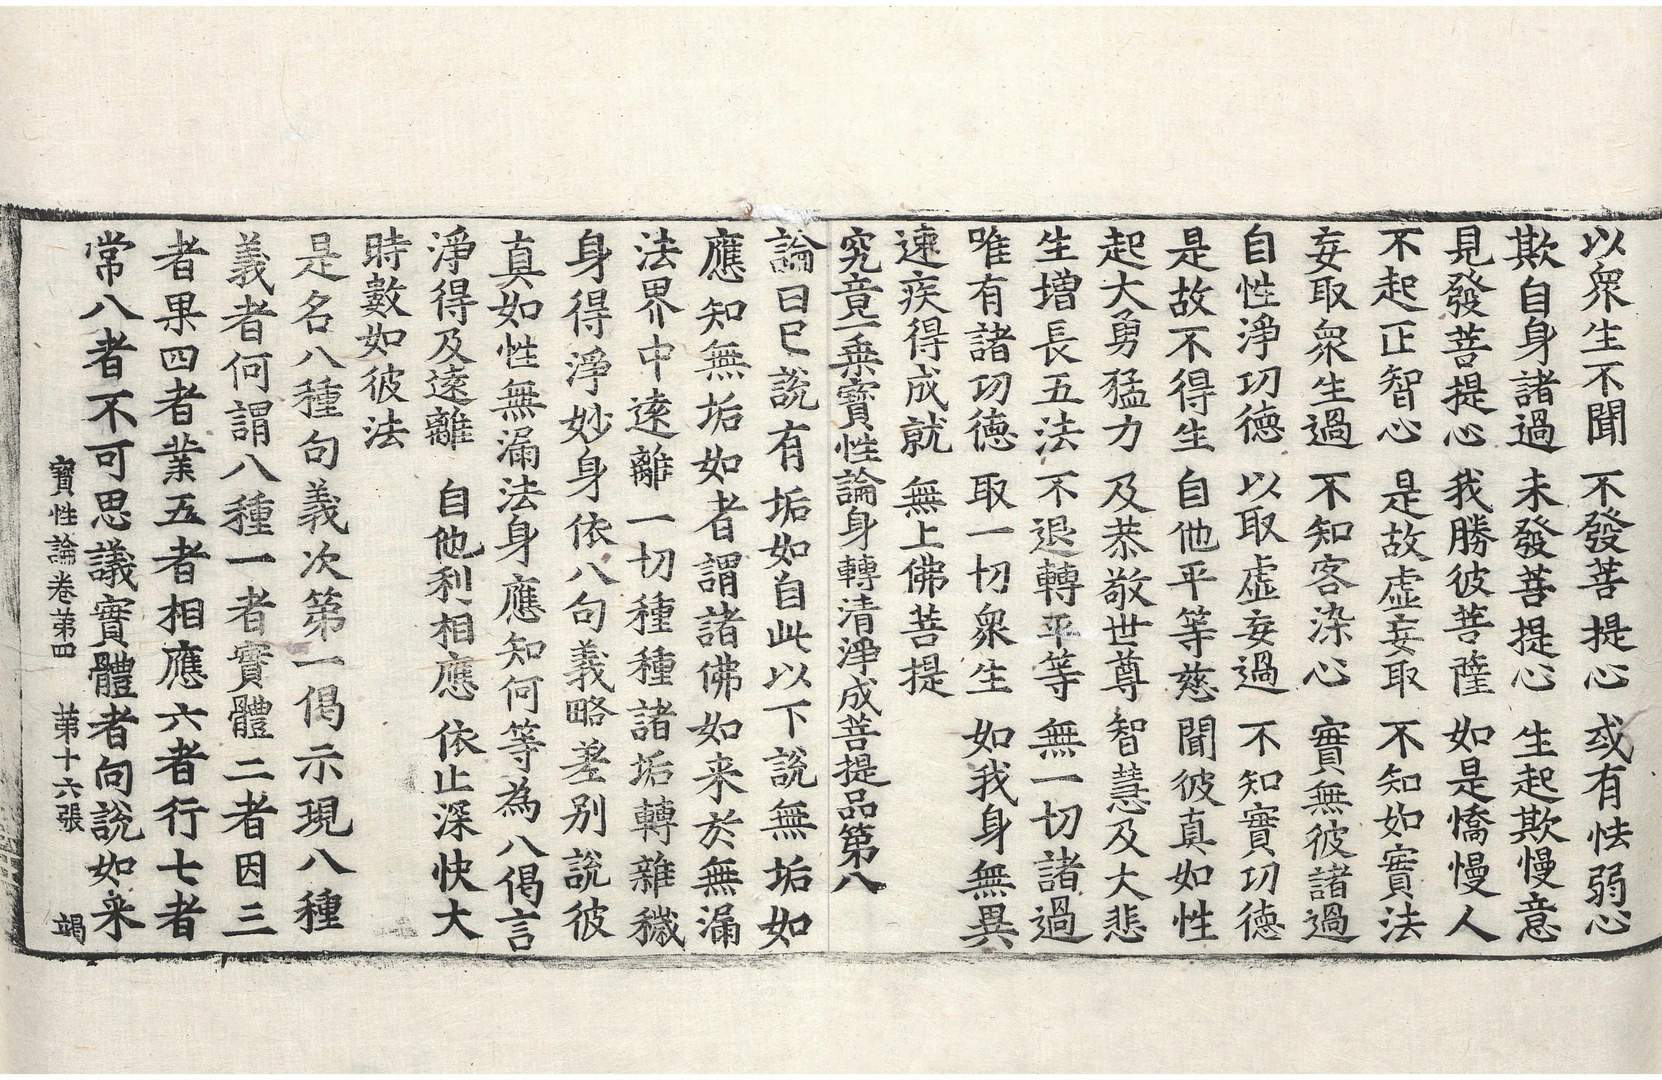 以衆生不聞　不發菩提心　或有怯弱心
欺自身諸過　未發菩提心　生起欺慢意
見發菩提心　我勝彼菩薩　如是憍慢人
不起正智心　是故虛妄取　不知如實法
妄取衆生過　不知客染心　實無彼諸過
自性淨功德　以取虛妄過　不知實功德
是故不得生　自他平等慈　聞彼真如性
起大勇猛力　及恭敬世尊　智慧及大悲
生增長五法　不退轉平等　無一切諸過
唯有諸功德　取一切衆生　如我身無異
速疾得成就　無上佛菩提
究竟一乘寶性論身轉清淨成菩提品第八
論曰已說有垢如自此以下說無垢如
應知無垢如者謂諸佛如来於無漏
法界中遠離一切種種諸垢轉雜穢
身得淨妙身依八句義略差别說彼
真如性無漏法身應知何等為八偈言
淨得及遠離　自他利相應　依止深快大
時數如彼法
是名八種句義次第一偈示現八種
義者何謂八種一者實體二者因三
者果四者業五者相應六者行七者
常八者不可思議實體者向說如来
寶性論卷第四　第十六張　竭